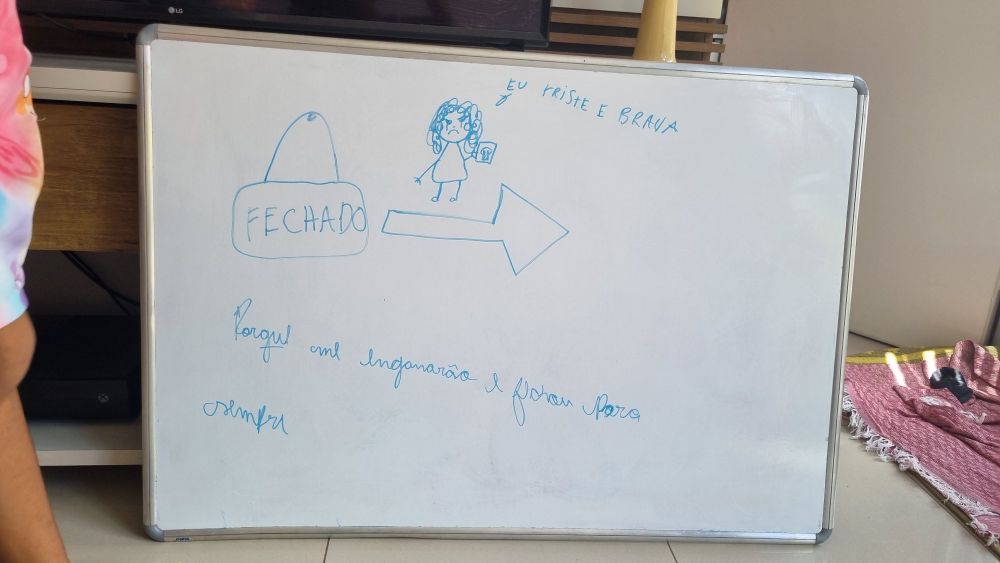 LG
EU TRISTE E BRAVA
FECHADO
Porque me enganarão e ficou para
sempre